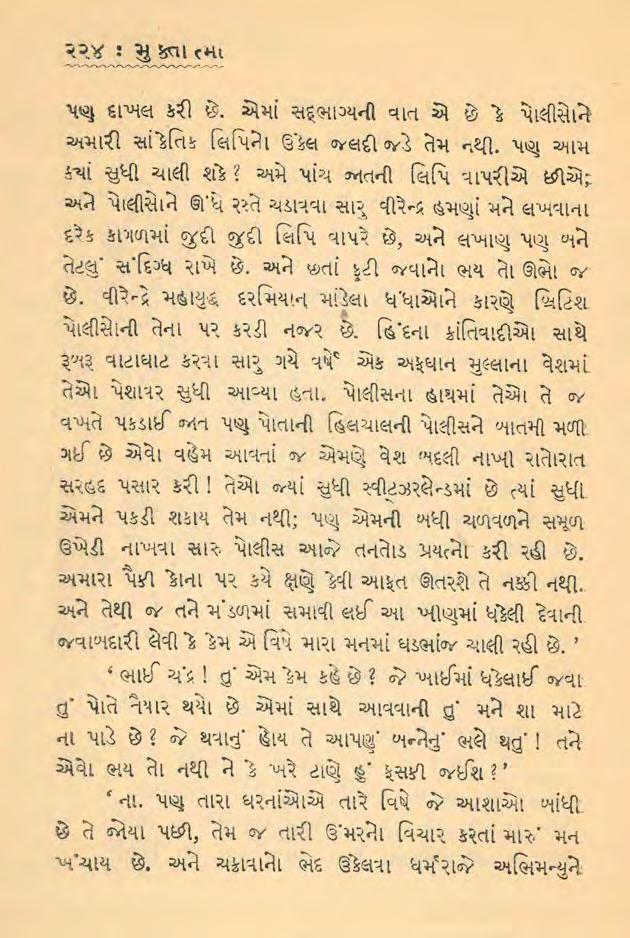 ૨૨૪ : મુક્તાત્મા
પણ દાખલ કરી છે. એમાં સદ્દભાગ્યની વાત એ છે કે પોલીસોને
અમારી સાંકેતિક લિપિનો ઉકેલ જલદી જડે તેમ નથી. પણ આમ
ક્યાં સુધી ચાલી શકે? અમે પાંચ જાતની લિપિ વાપરીએ છીએ;
અને પોલીસોને ઊંધે રસ્તે ચડાવવા સારુ વીરેન્દ્ર હમણાં મને લખવાના
દરેક કાગળમાં જુદી જુદી લિપિ વાપરે છે, અને લખાણ પણ બને
તેટલું સંદિગ્ધ રાખે છે. અને છતાં ફૂટી જવાનો ભય તો ઊભો જ
છે. વીરેન્દ્રે મહાયુદ્ધ દરમિયાન માંડેલા ધંધાઓને કારણે બ્રિટિશ
પોલીસોની તેના પર કરડી નજર છે. હિંદના ક્રાંતિવાદીઓ સાથે
રૂબરૂ વાટાઘાટ કરવા સારુ ગયે વર્ષે એક અફઘાન મુલ્લાના વેશમાં
તેઓ પેશાવર સુધી આવ્યા હતા. પોલીસના હાથમાં તેઓ તે જ
વખતે પકડાઈ જાત પણ પોતાની હિલચાલની પોલીસને બાતમી મળી
ગઈ છે એવો વહેમ આવતાં જ એમણે વેશ બદલી નાખી રાતોરાત
સરહદ પસાર કરી! તેઓ જ્યાં સુધી સ્વીટ્ઝરલેન્ડમાં છે ત્યાં સુધી
એમને પકડી શકાય તેમ નથી; પણ એમની બધી ચળવળને સમૂળ
ઉખેડી નાખવા સારુ પોલીસ આજે તનતોડ પ્રયત્નો કરી રહી છે.
અમારા પૈકી કોના પર કયે ક્ષણે કેવી આફત ઊતરશે તે નક્કી નથી.
અને તેથી જ તને મંડળમાં સમાવી લઈ આ ખીણમાં ધકેલી દેવાની
જવાબદારી લેવી કે કેમ એ વિષે મારા મનમાં ઘડભાંજ ચાલી રહી છે. ’
‘ ભાઈ ચંદ્ર! તું એમ કેમ કહે છે? જે ખાઈમાં ધકેલાઈ જવા
તું પોતે તૈયાર થયો છે એમાં સાથે આવવાની તું મને શા માટે
ના પાડે છે? જે થવાનું હોય તે આપણું બન્નેનું ભલે થતું! તને
એવો ભય તો નથી ને કે ખરે ટાણે હું ફસકી જઈશ?’
‘ના. પણ તારા ઘરનાંઓએ તારે વિષે જે આશાઓ બાંધી
છે તે જોયા પછી, તેમ જ તારી ઉંમરનો વિચાર કરતાં મારું મન
ખંચાય છે. અને ચક્રાવાનો ભેદ ઉકેલવા ધર્મરાજે અભિમન્યુને